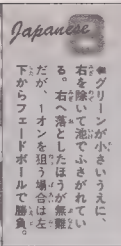 Japanese
グリーンが小さいうえに、
右を除いて池でふさがれてい
る。右へ落としたほうが無難
だが、1オンを狙う場合は左
下からフェードボールで勝負。